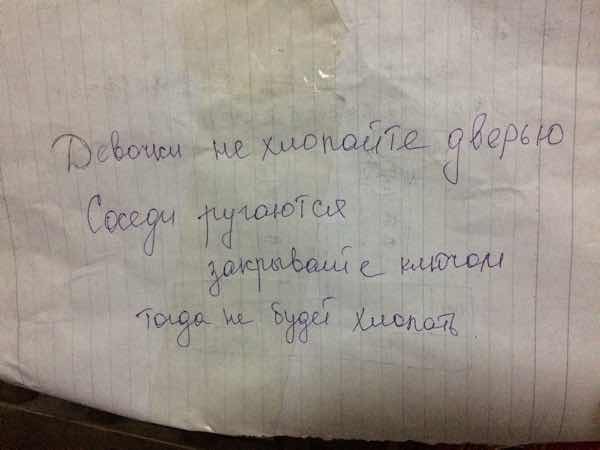 Девочки не хлопайте дверью
Соседи ругаются
закрывайте ключом
тогда не будет хлопать